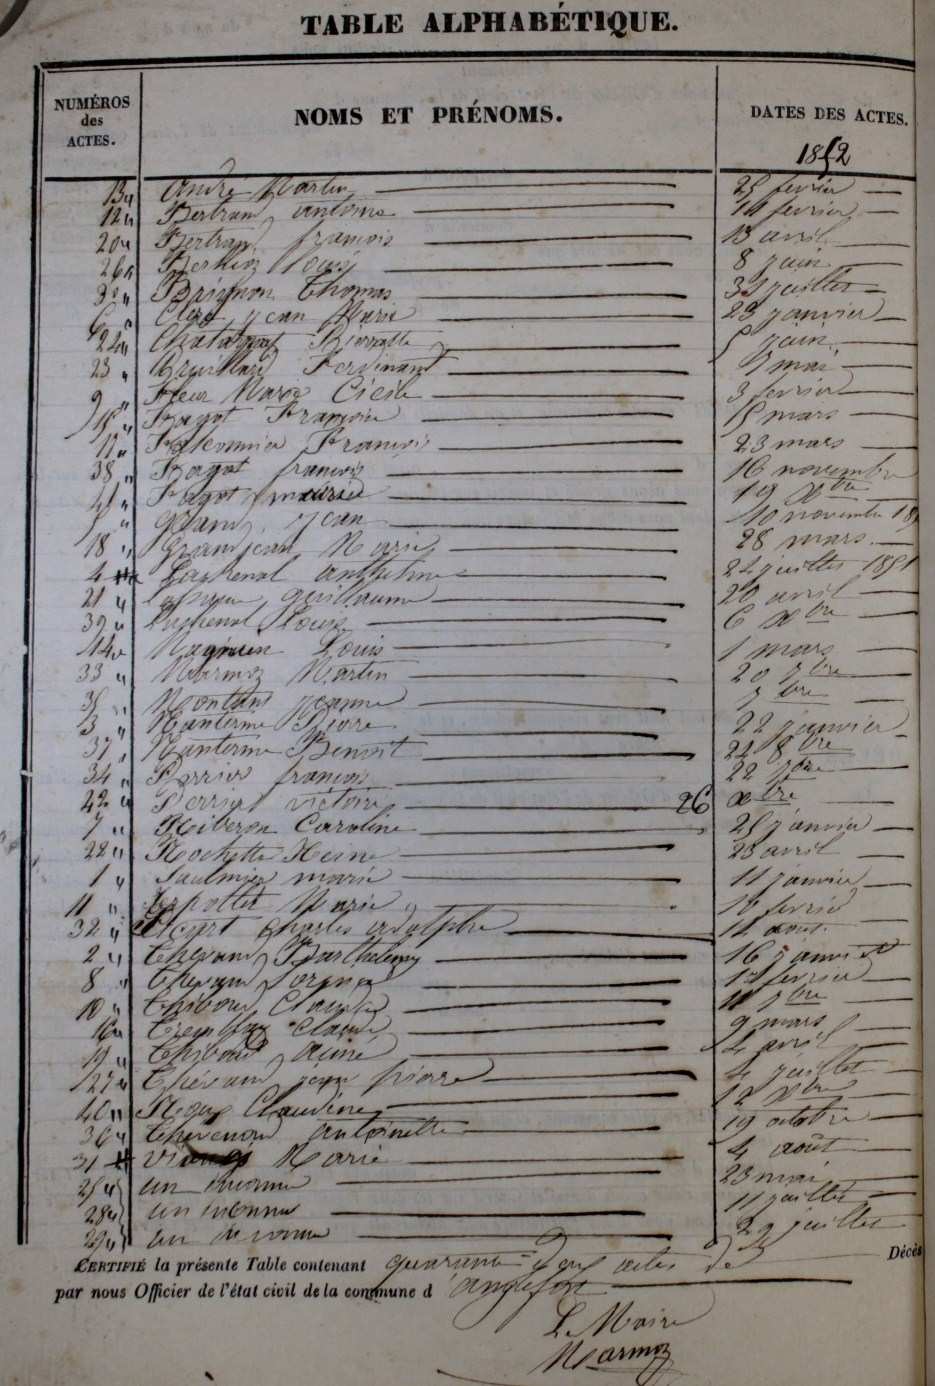 TABLE ALPHABÉTIQUE.
NUMÉROS des ACTES. NOMS ET PRÉNOMS. DATES DES ACTES.
1852
13 " André Martin 25 fevrier
12 " Bertrand antoine 14 fevrier
20 " Bertrand francois 13 avril
26 " Berthoz Louis 8 juin
30 " Brignon Thomas 31 juillet
6 " Clerc jean Marie 23 janvier
24 " Pierrette 5 juin
23 " Ferdinand 5 mai
9 " fleur Marie Cécile 3 fevrier
15 " Fagot Françoise 15 mars
17 " Falconnier François 23 mars
38 " Fagot francois 16 novembre
41 " Fagot 19 Xbre
5 " Grand jean 10 novembre 185
18 " Grandjean Marie 28 mars
4 Lachenal anthelme 22 juillet 1851
21 " guillaume 20 avril
39 " Lachenal Louise 6 Xbre
14 " Magnien Louis 1 mars
33 " Marmoz Martin 20 7bre
35 " jeanne 7bre
3 " Nanterme Pierre 22 janvier
37 " Nanterme Benoit 22 8bre
34 " Perrier francois 22 7bre
42 " Perrier victoire 26 Xbre
7 " Riberon Caroline 25 janvier
22 " Rochette 23 avril
1 " Saulmier marie 11 janvier
11 " Marie 12 fevrier
32 " Charles adolphe 14 aout
2 " Thevand Barthelemy 16 janvier
8 " Thevand 12 fevrier
10 " Thiboud Claude 11 fbre
16 " Tremblay Claude 9 mars
19 " Thiboud aimé 4 avril
27 " Thévand jean pierre 4 juillet
40 " Roux Claudine 12 Xbre
36 " Thevenod antoinette 19 octobre
31 Marie 4 août
25 " un inconnu 23 mai
28 " un inconnu 11 juillet
29 " un inconnu 29 juillet
CERTIFIÉ la présente Table contenant quarante-deux actes de Décès
par nous Officier de l'état civil de la commune d'anglefort
Le Maire
Marmoz